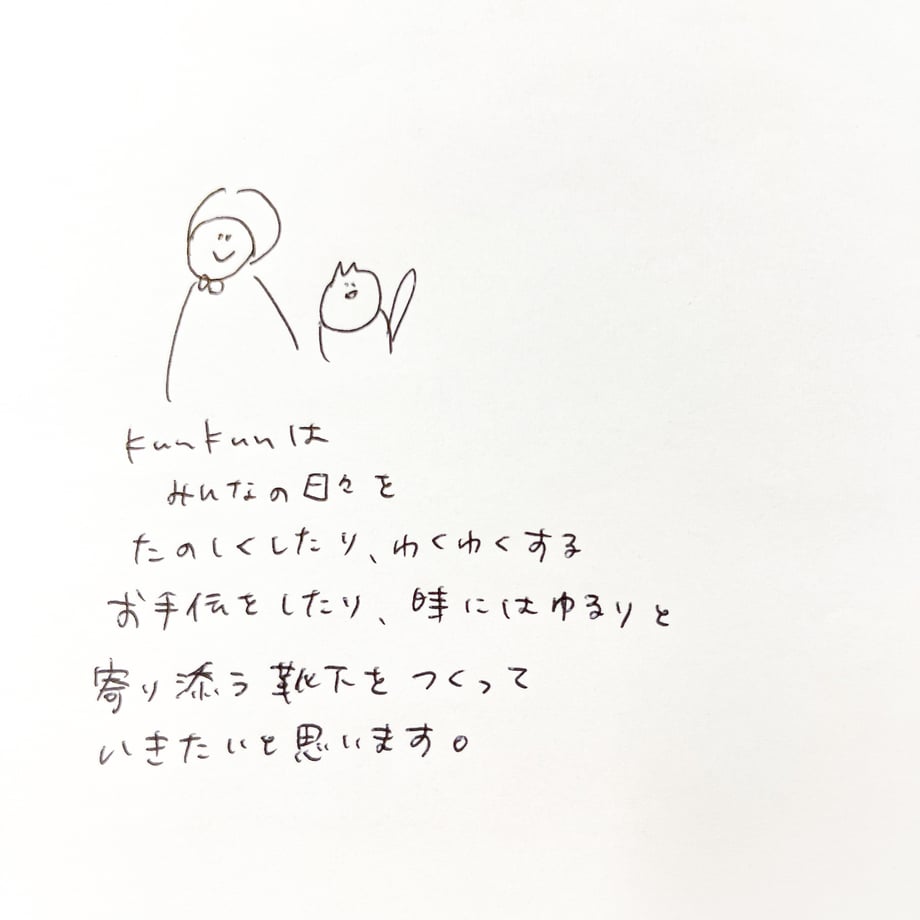 kunkunは
みんなの日々を
たのしくしたり、わくわくする
お手伝をしたり、時にはゆるりと
寄り添う靴下をつくって
いきたいと思います。